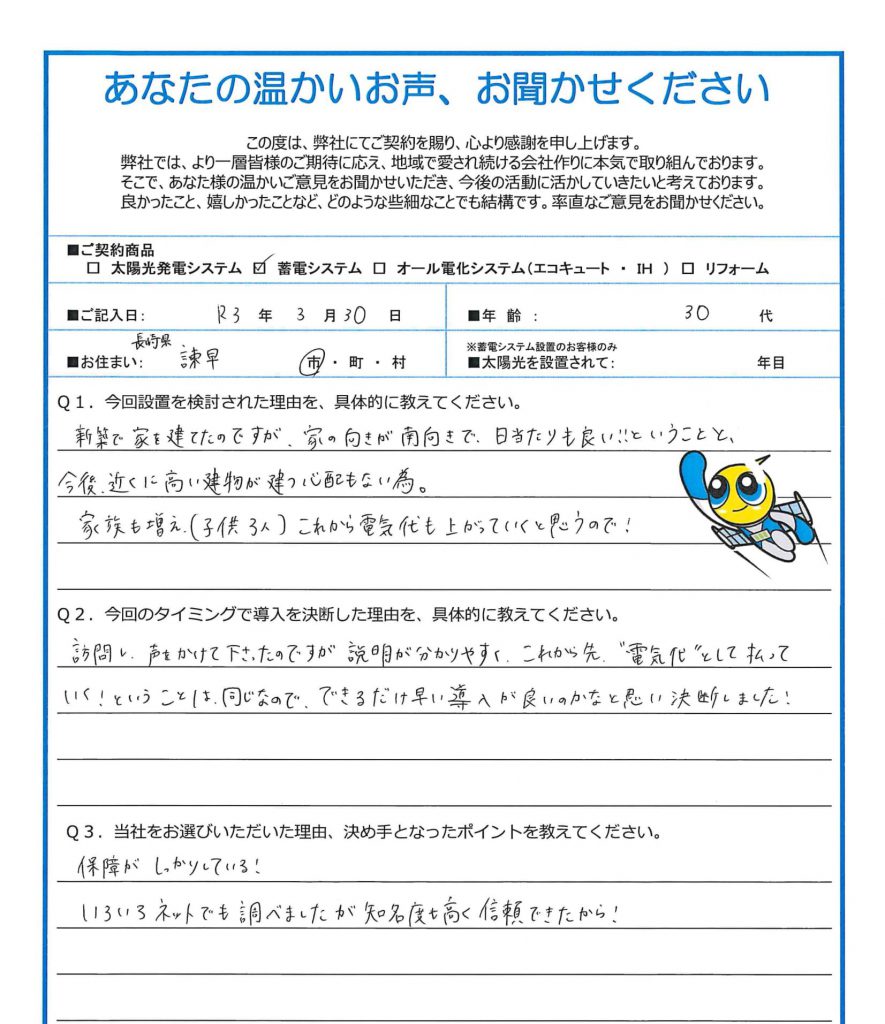 あなたの温かいお声、お聞かせください
この度は、弊社にてご契約を賜り、心より感謝を申し上げます。
弊社では、より一層皆様のご期待に応え、地域で愛され続ける会社作りに本気で取り組んでおります。
そこで、あなた様の温かいご意見をお聞かせいただき、今後の活動に活かしていきたいと考えております。
良かったこと、嬉しかったことなど、どのような些細なことでも結構です。率直なご意見をお聞かせください。
■ご契約商品
□ 太陽光発電システム ☑ 蓄電システム □ オール電化システム(エコキュート ・ IH ) □ リフォーム
■ご記入日: R3 年 3 月 30 日 ■年 齢 : 30 代
■お住まい: 長崎県 諫早 市・町・村 ※蓄電システム設置のお客様のみ
■太陽光を設置されて: 年目
Q1. 今回設置を検討された理由を、具体的に教えてください。
新築で家を建てたのですが、家の向きが南向きで、日当たりも良い!!ということと、
今後、近くに高い建物が建つ心配もない為。
家族も増え、(子供3人) これから電気代も上がっていくと思うので!
Q2. 今回のタイミングで導入を決断した理由を、具体的に教えてください。
訪問し、声をかけて下さったのですが説明が分かりやすく、これから先、"電気代"として払って
いく!ということは、同じなので、できるだけ早い導入が良いのかなと思い決断しました!
Q3. 当社をお選びいただいた理由、決め手となったポイントを教えてください。
保障がしっかりしている!
いろいろネットでも調べましたが知名度も高く信頼できたから!